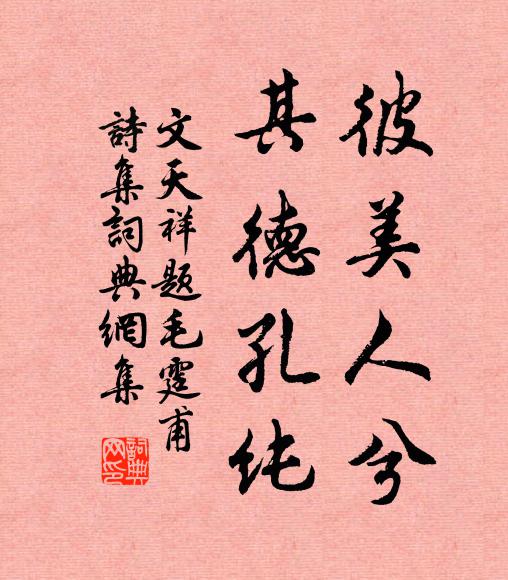 彼美人兮
其德孔纯
文天祥题毛霆甫
詩集詞典網集
詞典网印